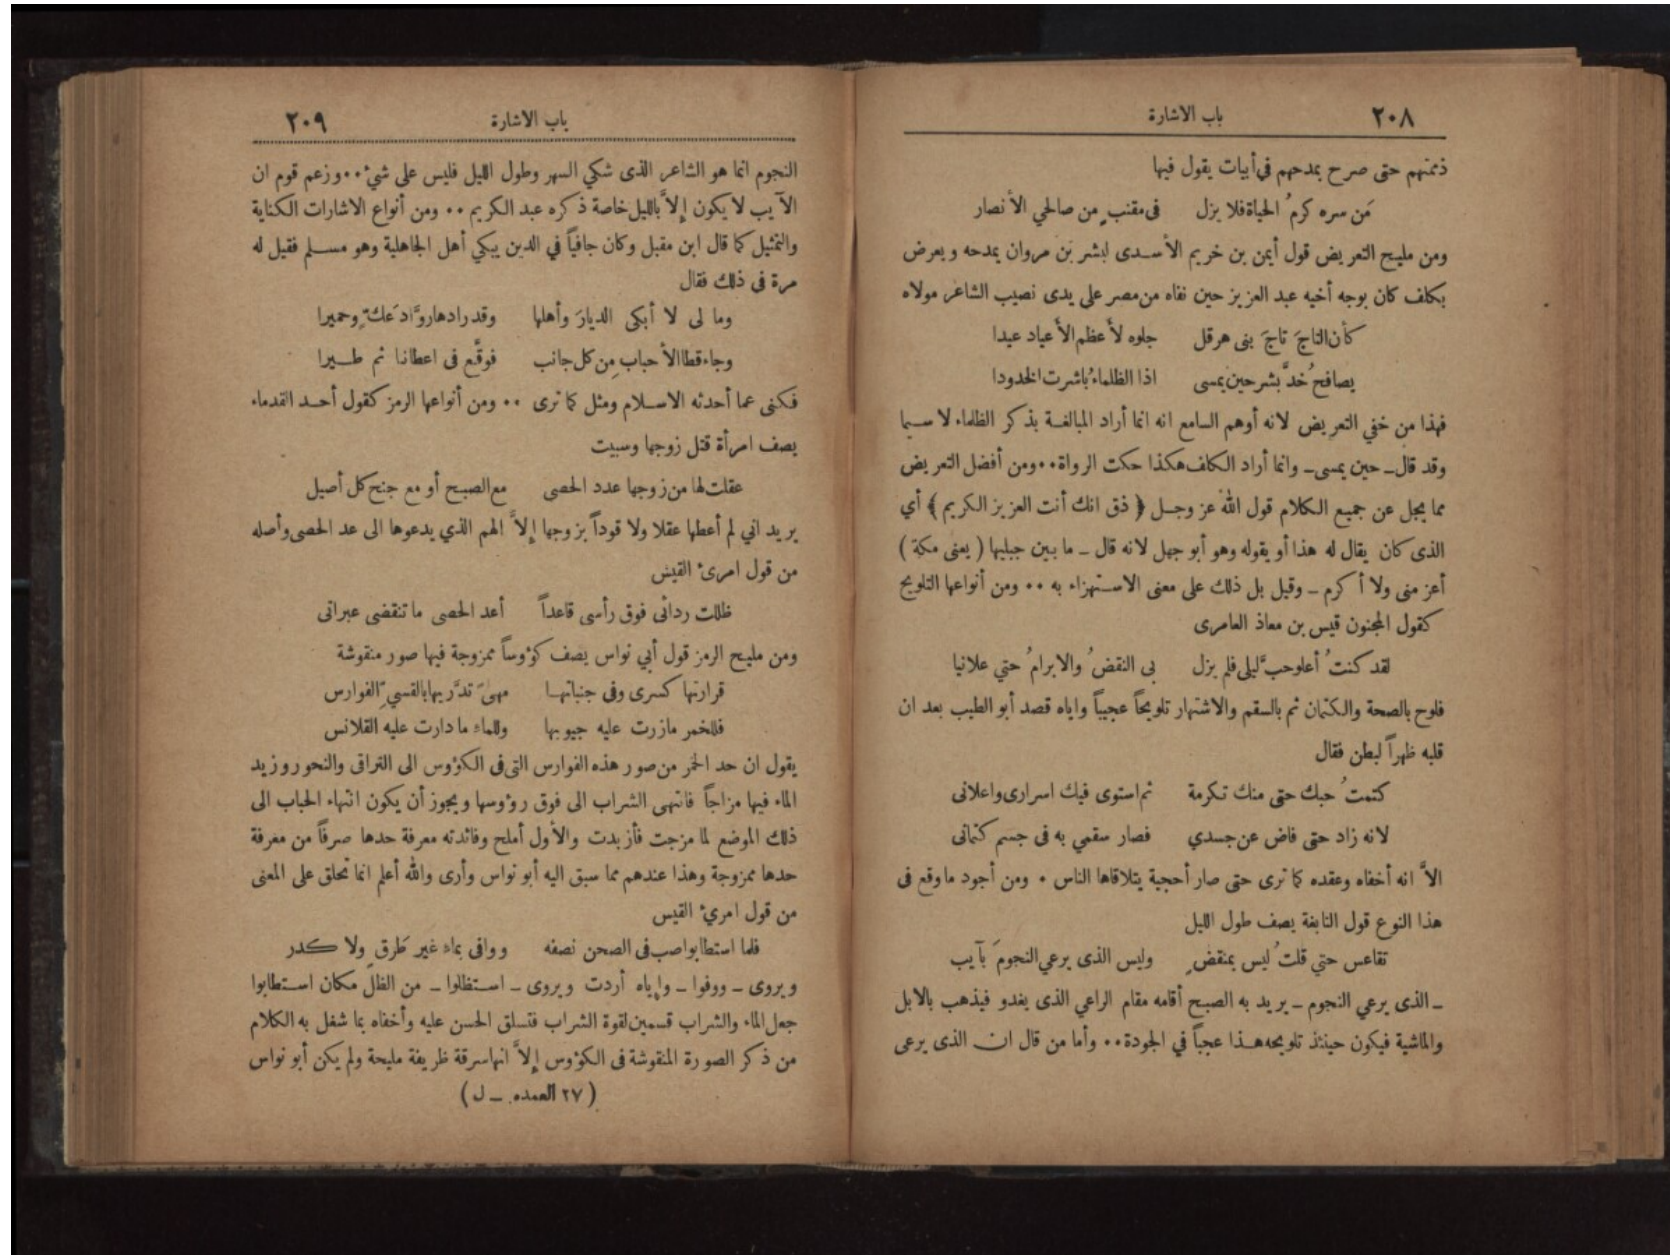 ٢٠٨
باب الاشارة
ذممتهم حتى صرح بمدحهم في أبيات يقول فيها
مَن سره كرمُ الحياة فلا يزل فى مقنبٍ من صالحي الأنصار
ومن مليح التعريض قول أيمن بن خريم الأسدى لبشر بن مروان يمدحه ويعرض
بكلف كان بوجه أخيه عبد العزيز حين نفاه من مصر على يدى نصيب الشاعر مولاه
كأن التاجَ تاجَ بنى هرقل جلوه لأعظم الأعياد عيدا
يصافح خدَّ بشر حين يمسى اذا الظلماءُ باشرت الخدودا
فهذا من خفي التعريض لانه أوهم السامع انه انما أراد المبالغة بذكر الظلماء لا سيما
وقد قال ـ حين يمسى ـ وانما أراد الكلف هكذا حكت الرواة ٠٠ ومن أفضل التعريض
مما يجل عن جميع الكلام قول الله عز وجل ﴿ ذق انك أنت العزيز الكريم ﴾ أي
الذى كان يقال له هذا أو يقوله وهو أبو جهل لانه قال ـ ما بين جبليها ( يعنى مكة )
أعز منى ولا أكرم ـ وقيل بل ذلك على معنى الاستهزاء به ٠٠ ومن أنواعها التلويح
كقول المجنون قيس بن معاذ العامرى
لقد كنتُ أعلو حبَّ ليلى فلم يزل بى النقضُ والابرامُ حتي علانيا
فلوح بالصحة والكتمان ثم بالسقم والاشتهار تلويحاً عجيباً واياه قصد أبو الطيب بعد ان
قلبه ظهراً لبطن فقال
كتمتُ حبك حتى منك تكرمة ثم استوى فيك اسرارى واعلانى
لانه زاد حتى فاض عن جسدي فصار سقمي به فى جسم كتمانى
الاَّ انه أخفاه وعقده كما ترى حتى صار أحجية يتلاقاها الناس ٠ ومن أجود ما وقع فى
هذا النوع قول النابغة يصف طول الليل
تقاعس حتي قلتُ ليس بمنقضٍ وليس الذى يرعي النجومَ بآيب
ـ الذى يرعي النجوم ـ يريد به الصبح أقامه مقام الراعي الذى يغدو فيذهب بالابل
والماشية فيكون حينئذ تلويحه هذا عجباً في الجودة ٠٠ وأما من قال ان الذى يرعى
باب الاشارة
٢٠٩
النجوم انما هو الشاعر الذى شكي السهر وطول الليل فليس على شيء ٠٠ وزعم قوم ان
الآيب لا يكون إلاَّ بالليل خاصة ذكره عبد الكريم ٠٠ ومن أنواع الاشارات الكناية
والتمثيل كما قال ابن مقبل وكان جافياً في الدين يبكي أهل الجاهلية وهو مسلم فقيل له
مرة فى ذلك فقال
وما لى لا أبكى الديارَ وأهلها وقد رادها روَّاد عَكّ وحميرا
وجاء قطا الأحباب من كل جانب فوقَّع فى اعطاننا ثم طيرا
فكنى عما أحدثه الاسلام ومثل كما ترى ٠٠ ومن أنواعها الرمز كقول أحد القدماء
يصف امرأة قتل زوجها وسبيت
عقلت لها من زوجها عدد الحصى مع الصبح أو مع جنح كل أصيل
يريد اني لم أعطها عقلا ولا قوداً بزوجها إلاَّ الهم الذي يدعوها الى عد الحصى وأصله
من قول امرئ القيس
ظللت ردائى فوق رأسى قاعداً أعد الحصى ما تنقضى عبراتى
ومن مليح الرمز قول أبي نواس يصف كؤوساً ممزوجة فيها صور منقوشة
قرارتها كسرى وفى جنباتها مهىً تدَّريها بالقسيِّ الفوارس
فللخمر مازرت عليه جيوبها وللماء ما دارت عليه القلانس
يقول ان حد الخمر من صور هذه الفوارس التى فى الكؤوس الى التراقى والنحور وزيد
الماء فيها مزاجاً فانتهى الشراب الى فوق رؤوسها ويجوز أن يكون انتهاء الحباب الى
ذلك الموضع لما مزجت فأزبدت والأول أملح وفائدته معرفة حدها صرفاً من معرفة
حدها ممزوجة وهذا عندهم مما سبق اليه أبو نواس وأرى والله أعلم انما تحلق على المعنى
من قول امرئ القيس
فلما استطابوا صب فى الصحن نصفه ووافى بماء غير طَرقٍ ولا كدر
ويروى ـ ووفوا ـ وإياه أردت ويروى ـ استظلوا ـ من الظل مكان استطابوا
جعل الماء والشراب قسمين لقوة الشراب فتسلق الحسن عليه وأخفاه بما شغل به الكلام
من ذكر الصورة المنقوشة فى الكؤوس إلاَّ انها سرقة ظريفة مليحة ولم يكن أبو نواس
( ٢٧ العمده ـ ل )